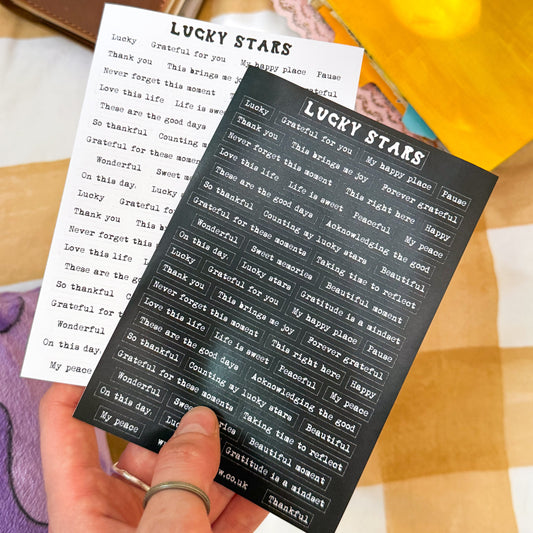 LUCKY STARS
Lucky Grateful for you My happy place Pause
Thank you This brings me joy grateful
Never forget this moment
Love this life Life is sweet
These are the good days
So thankful Counting
Grateful for these moments
Wonderful Sweet
On this day. Lucky
Lucky Grateful
Thank you This
Never forget this
Love this life
These are the
So thankful
Grateful for
Wonderful
On this day.
My peace
LUCKY STARS
Lucky Grateful for you My happy place Pause
Thank you This brings me joy Forever grateful
Never forget this moment This right here Happy
Love this life Life is sweet Peaceful My peace
These are the good days Acknowledging the good
So thankful Counting my lucky stars Beautiful
Grateful for these moments Taking time to reflect
Wonderful Sweet memories Beautiful moment
On this day. Lucky stars Gratitude is a mindset
Lucky Grateful for you My happy place Pause
Thank you This brings me joy Forever grateful
Never forget this moment This right here Happy
Love this life Life is sweet Peaceful My peace
These are the good days Acknowledging the good
So thankful Counting my lucky stars Beautiful
Grateful for these moments Taking time to reflect
Wonderful Beautiful moment
On this day. Gratitude is a mindset
My peace w.co.uk Thankful